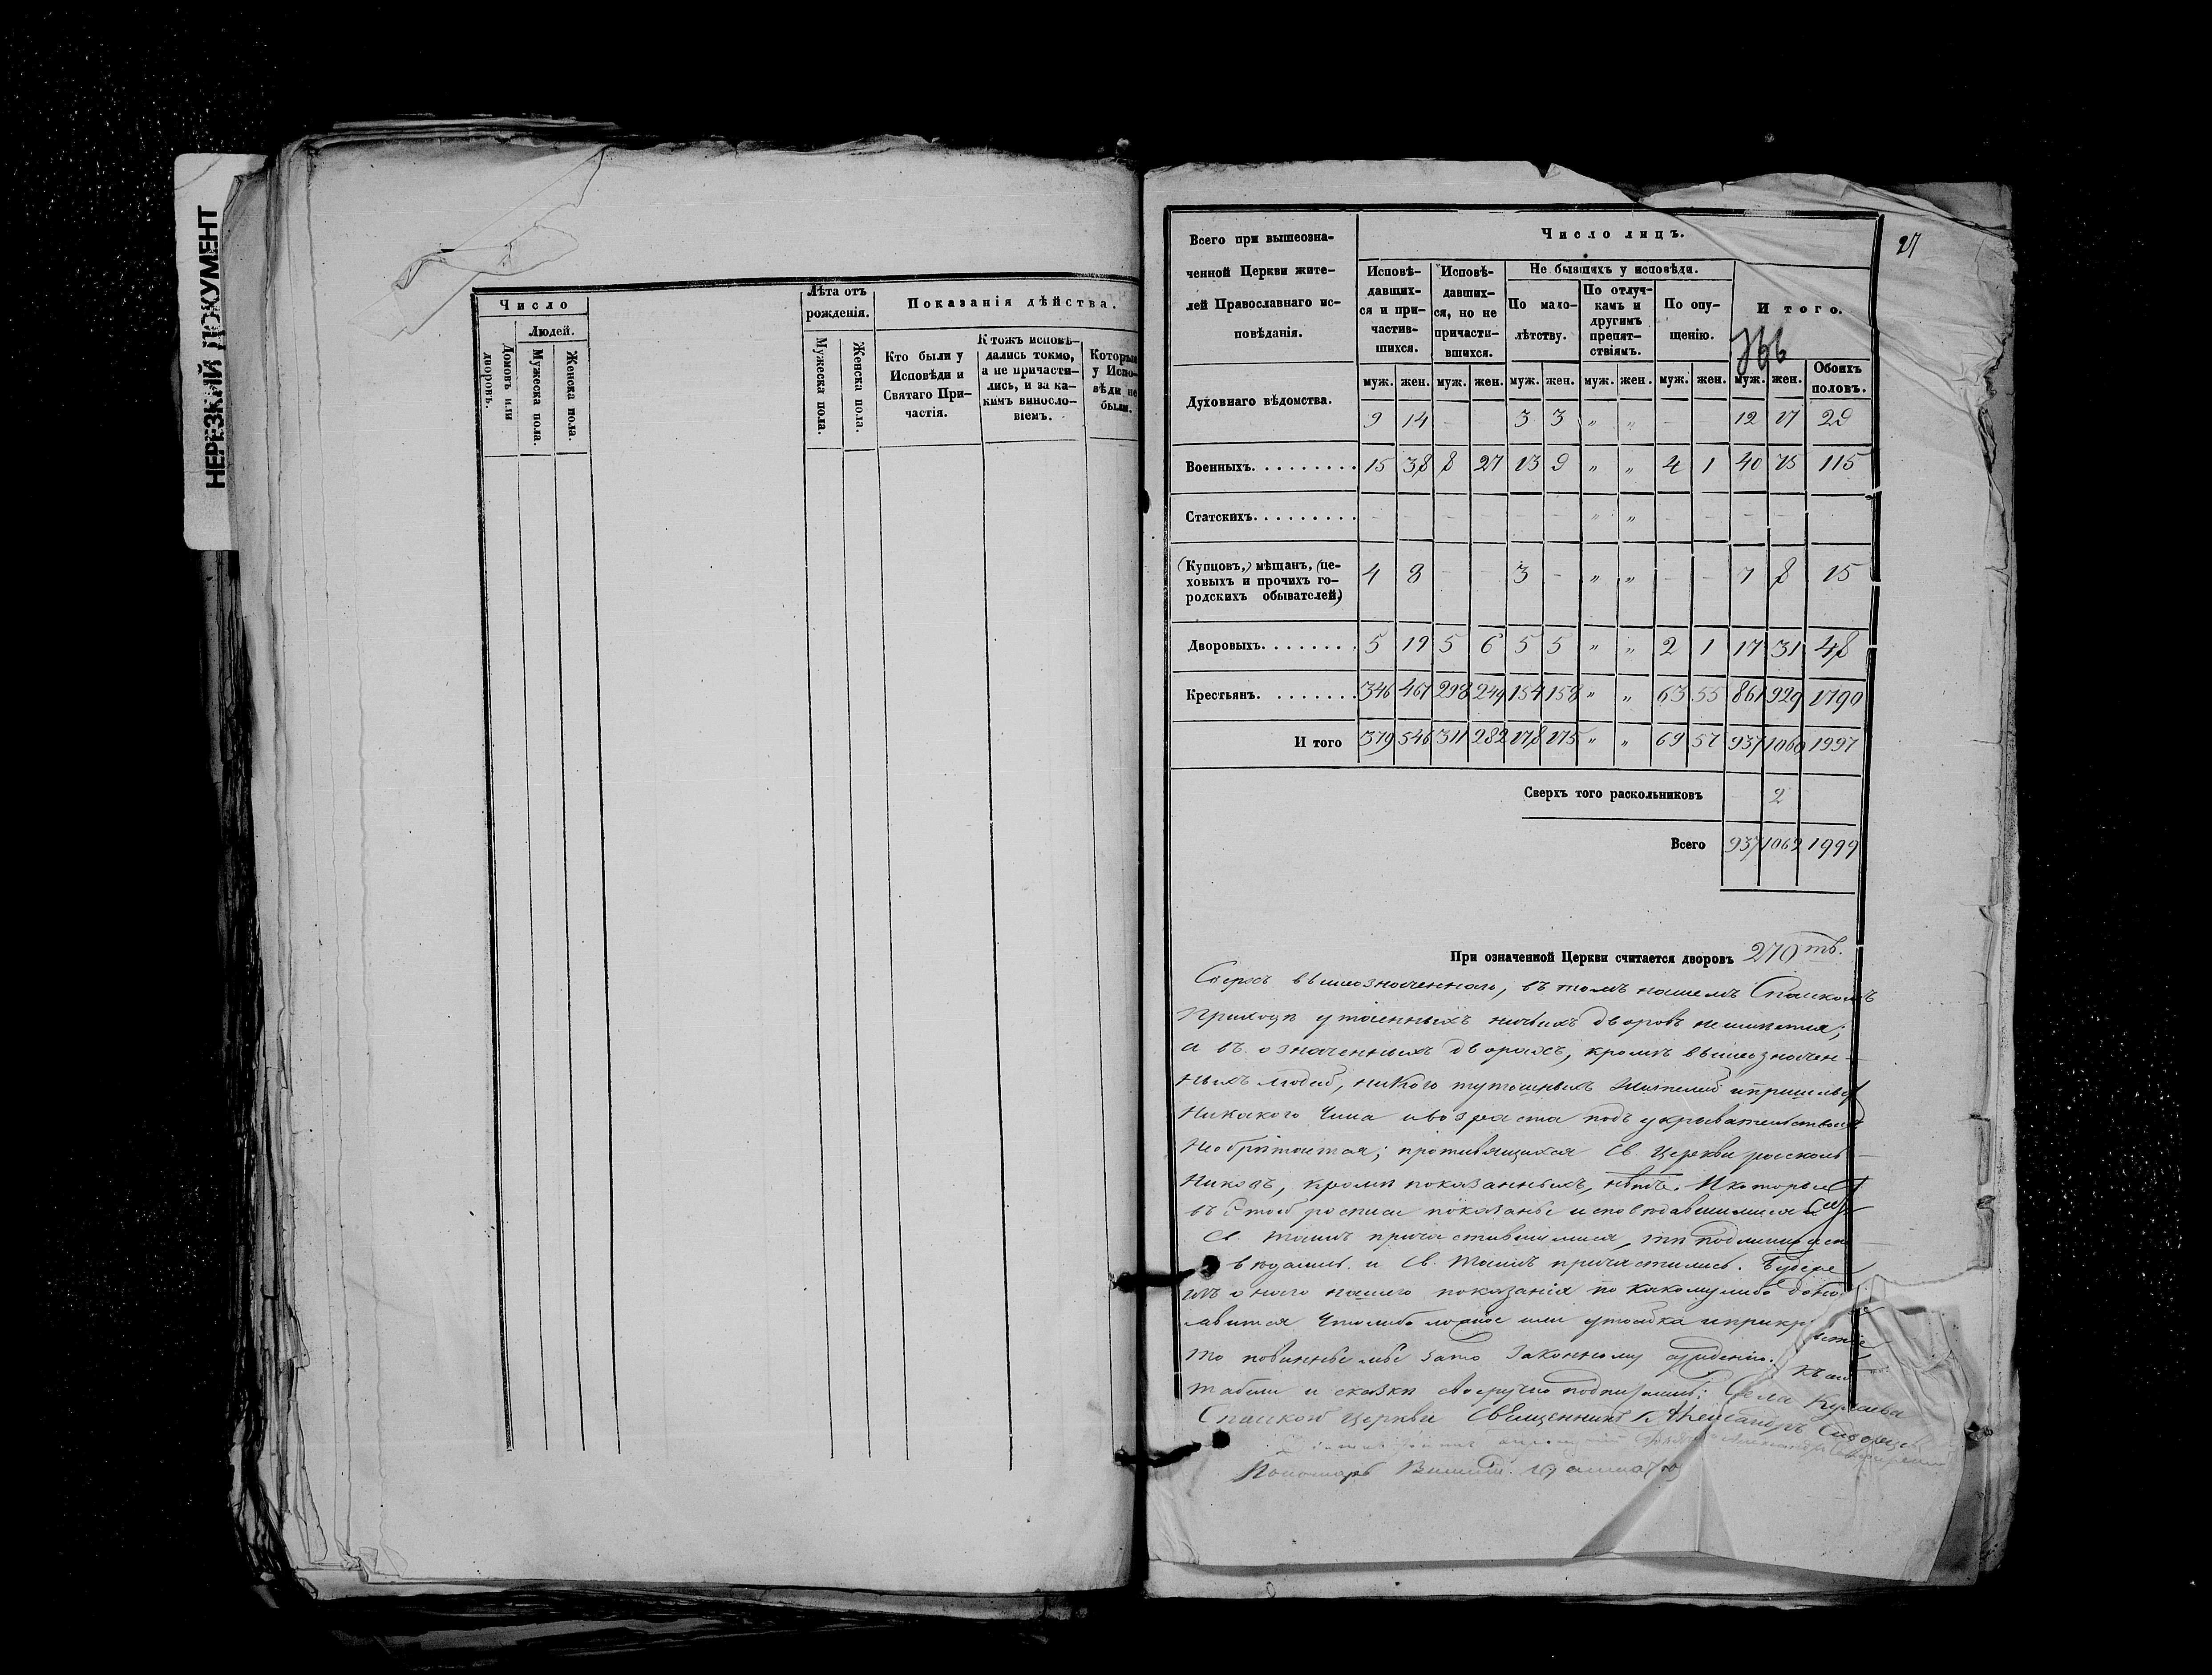 НЕРЕЗКИЙ ДОКУМЕНТ
Число
Домовъ или дворовъ.
Людей.
Мужеска пола.
Женска пола.
Лѣта отъ рожденія.
Мужеска пола.
Женска пола.
Показанія дѣйства.
Кто были у Исповѣди и Святаго При-
частія.
Ктожъ исповѣ-
дались токмо,
а не причасти-
лись, и за ка-
кимъ винословіемъ.
Которые
у Испо-
вѣди не
были.
27
Всего при вышеозна-
ченной Церкви жите-
лей Православнаго ис-
повѣданія.
Число лицъ.
Исповѣ-
давших-
ся и при-
частив-
шихся.
Исповѣ-
давших-
ся, но не
причасти-
вшихся.
Не бывшихъ у исповѣди.
По мало-
лѣтству.
По отлуч-
камъ и
другимъ
препят-
ствіямъ.
По опу-
щенію.
Итого.
муж. жен. муж. жен. муж. жен. муж. жен. муж. жен. муж. жен. Обоихъ половъ.
Духовнаго вѣдомства. 9 14 - - 3 3 „ „ - - 12 17 29
Военныхъ. 15 38 8 27 13 9 „ „ 4 1 40 75 115
Статскихъ. - - - - - - „ „ - - - - -
(Купцовъ,) мѣщанъ, (це-
ховыхъ и прочихъ го-
родскихъ обывателей) 4 8 - - 3 - „ „ - - 7 8 15
Дворовыхъ. 5 19 5 6 5 5 „ „ 2 1 17 31 48
Крестьянъ. 346 467 298 249 154 158 „ „ 63 55 861 929 1790
И того 379 546 311 282 178 175 „ „ 69 57 937 1060 1997
Сверхъ того раскольниковъ 2
Всего 937 1062 1999
При означенной Церкви считается дворовъ 270тъ.
Сверхъ вышеозначеннаго, въ томъ нашемъ Спаскомъ
Приходѣ утаенныхъ ничьихъ дворовъ неимѣется;
а въ означенныхъ дворахъ, кромѣ вышеозначен-
ныхъ людей, никого тутошныхъ жителей и пришлыхъ
никакого чина и возраста подъ укрывательствомъ
необрѣтается; противящихся Св. Церкви расколь-
никовъ, кромѣ показанныхъ, нѣтъ. И которые
въ этой росписи показаны исповѣдавшимися и
Св. Таинъ причастившимися, тѣ подлинно испо-
вѣдались и Св. Таинъ причастились. Буде
оного нашего показанія по какому либо
явится что либо ложное или утайка и прикрытіе
то повинны мы зато законному сужденію.
и сказки своеручно подписались; Села
Спаской Церкви Священникъ Александръ
Пономарь